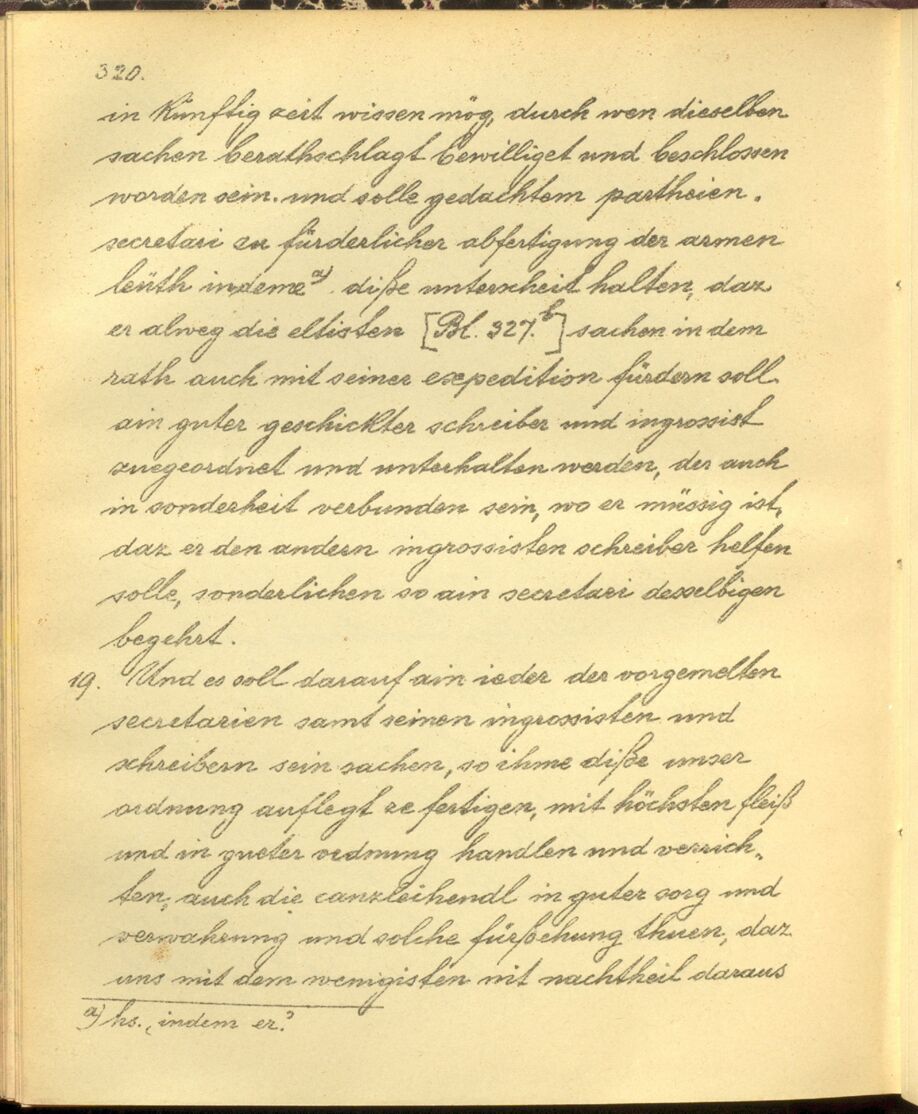 320.
in künftig zeit wissen mög, durch wen dieselben
sachen berathschlagt bewilliget und beschlossen
worden sein. und solle gedachtem partheien.
secretari zu fürderlicher abfertigung der armen
leüth indeme a) diße unterscheit halten, daz
er alweg die eltisten [Bl. 327.b] sachen in dem
rath auch mit seiner expedition fürdern soll
ain guter geschickter schreiber und ingrossist
zuegeordnet und unterhalten werden, der auch
in sonderheit verbunden sein, wo er müssig ist,
daz er den andern ingrossisten schreiber helfen
solle, sonderlichen so ain secretari desselbigen
begehrt.
19. Und es soll darauf ain ieder der vorgemelten
secretarien samt seinen ingrossisten und
schreibern sein sachen, so ihme diße unser
ordnung auflegt ze fertigen, mit höchsten fleiß
und in gueter ordnung handlen und verrich-
ten, auch die canzleihendl in guter sorg und
verwahrung und solche fürßehung thuen, daz
uns mit dem wenigisten nit nachtheil daraus
a) hs. "indem er."